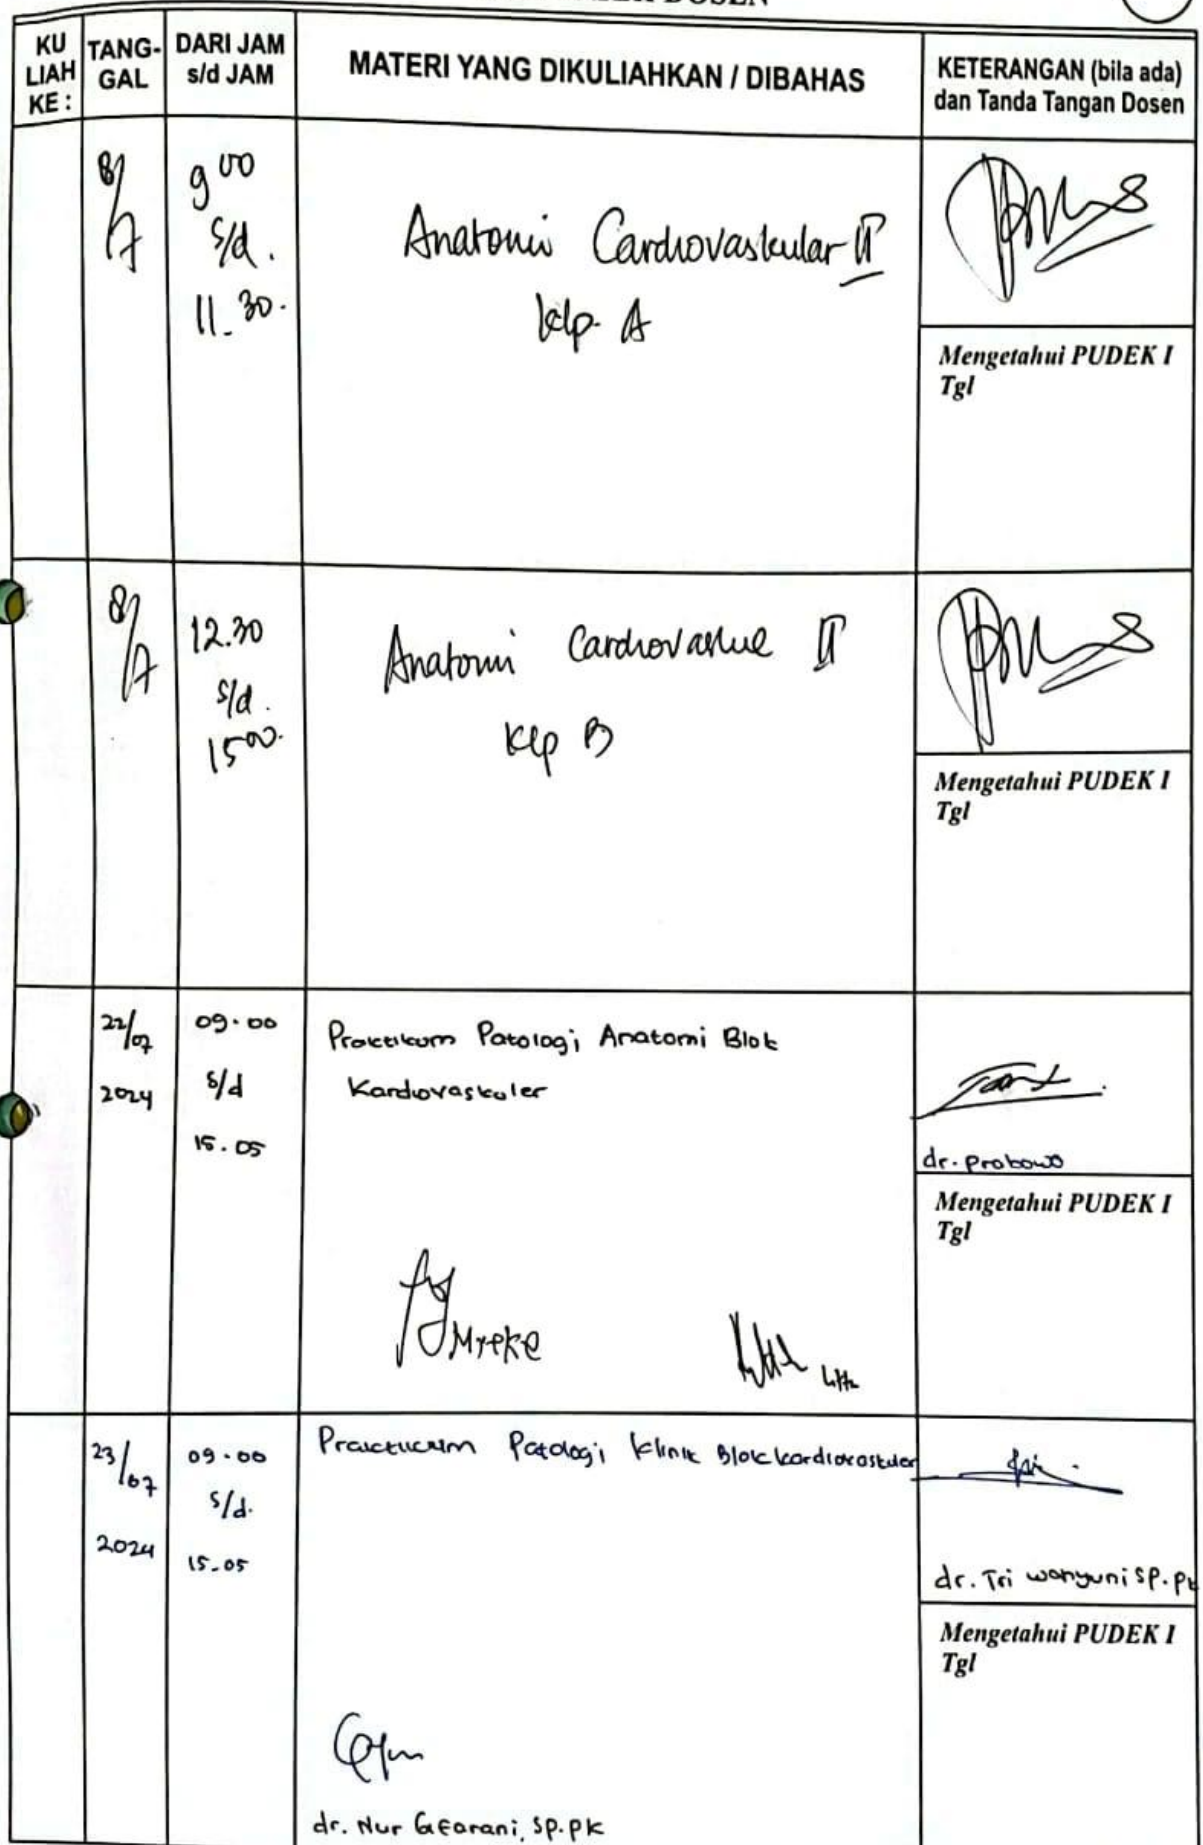 DOSEN
KU
LIAH
KE :
TANG-
GAL
DARI JAM
s/d JAM
MATERI YANG DIKULIAHKAN / DIBAHAS
KETERANGAN (bila ada)
dan Tanda Tangan Dosen
8/7
9 00
s/d.
11.30.
Anatomi Cardiovaskular II
klp. A
Mengetahui PUDEK I
Tgl
8/7
12.30
s/d.
15 00.
Anatomi Cardiovaskul II
klp B
Mengetahui PUDEK I
Tgl
22/07
2024
09.00
s/d
15.05
Praktikum Patologi Anatomi Blok
Kardiovaskuler
dr. Prabowo
Mengetahui PUDEK I
Tgl
23/07
2024
09.00
s/d.
15.05
Practicum Patologi Klinik Blok kardiovaskuler
dr. Tri wahyuni SP.PK
Mengetahui PUDEK I
Tgl
dr. Nur
SP.PK